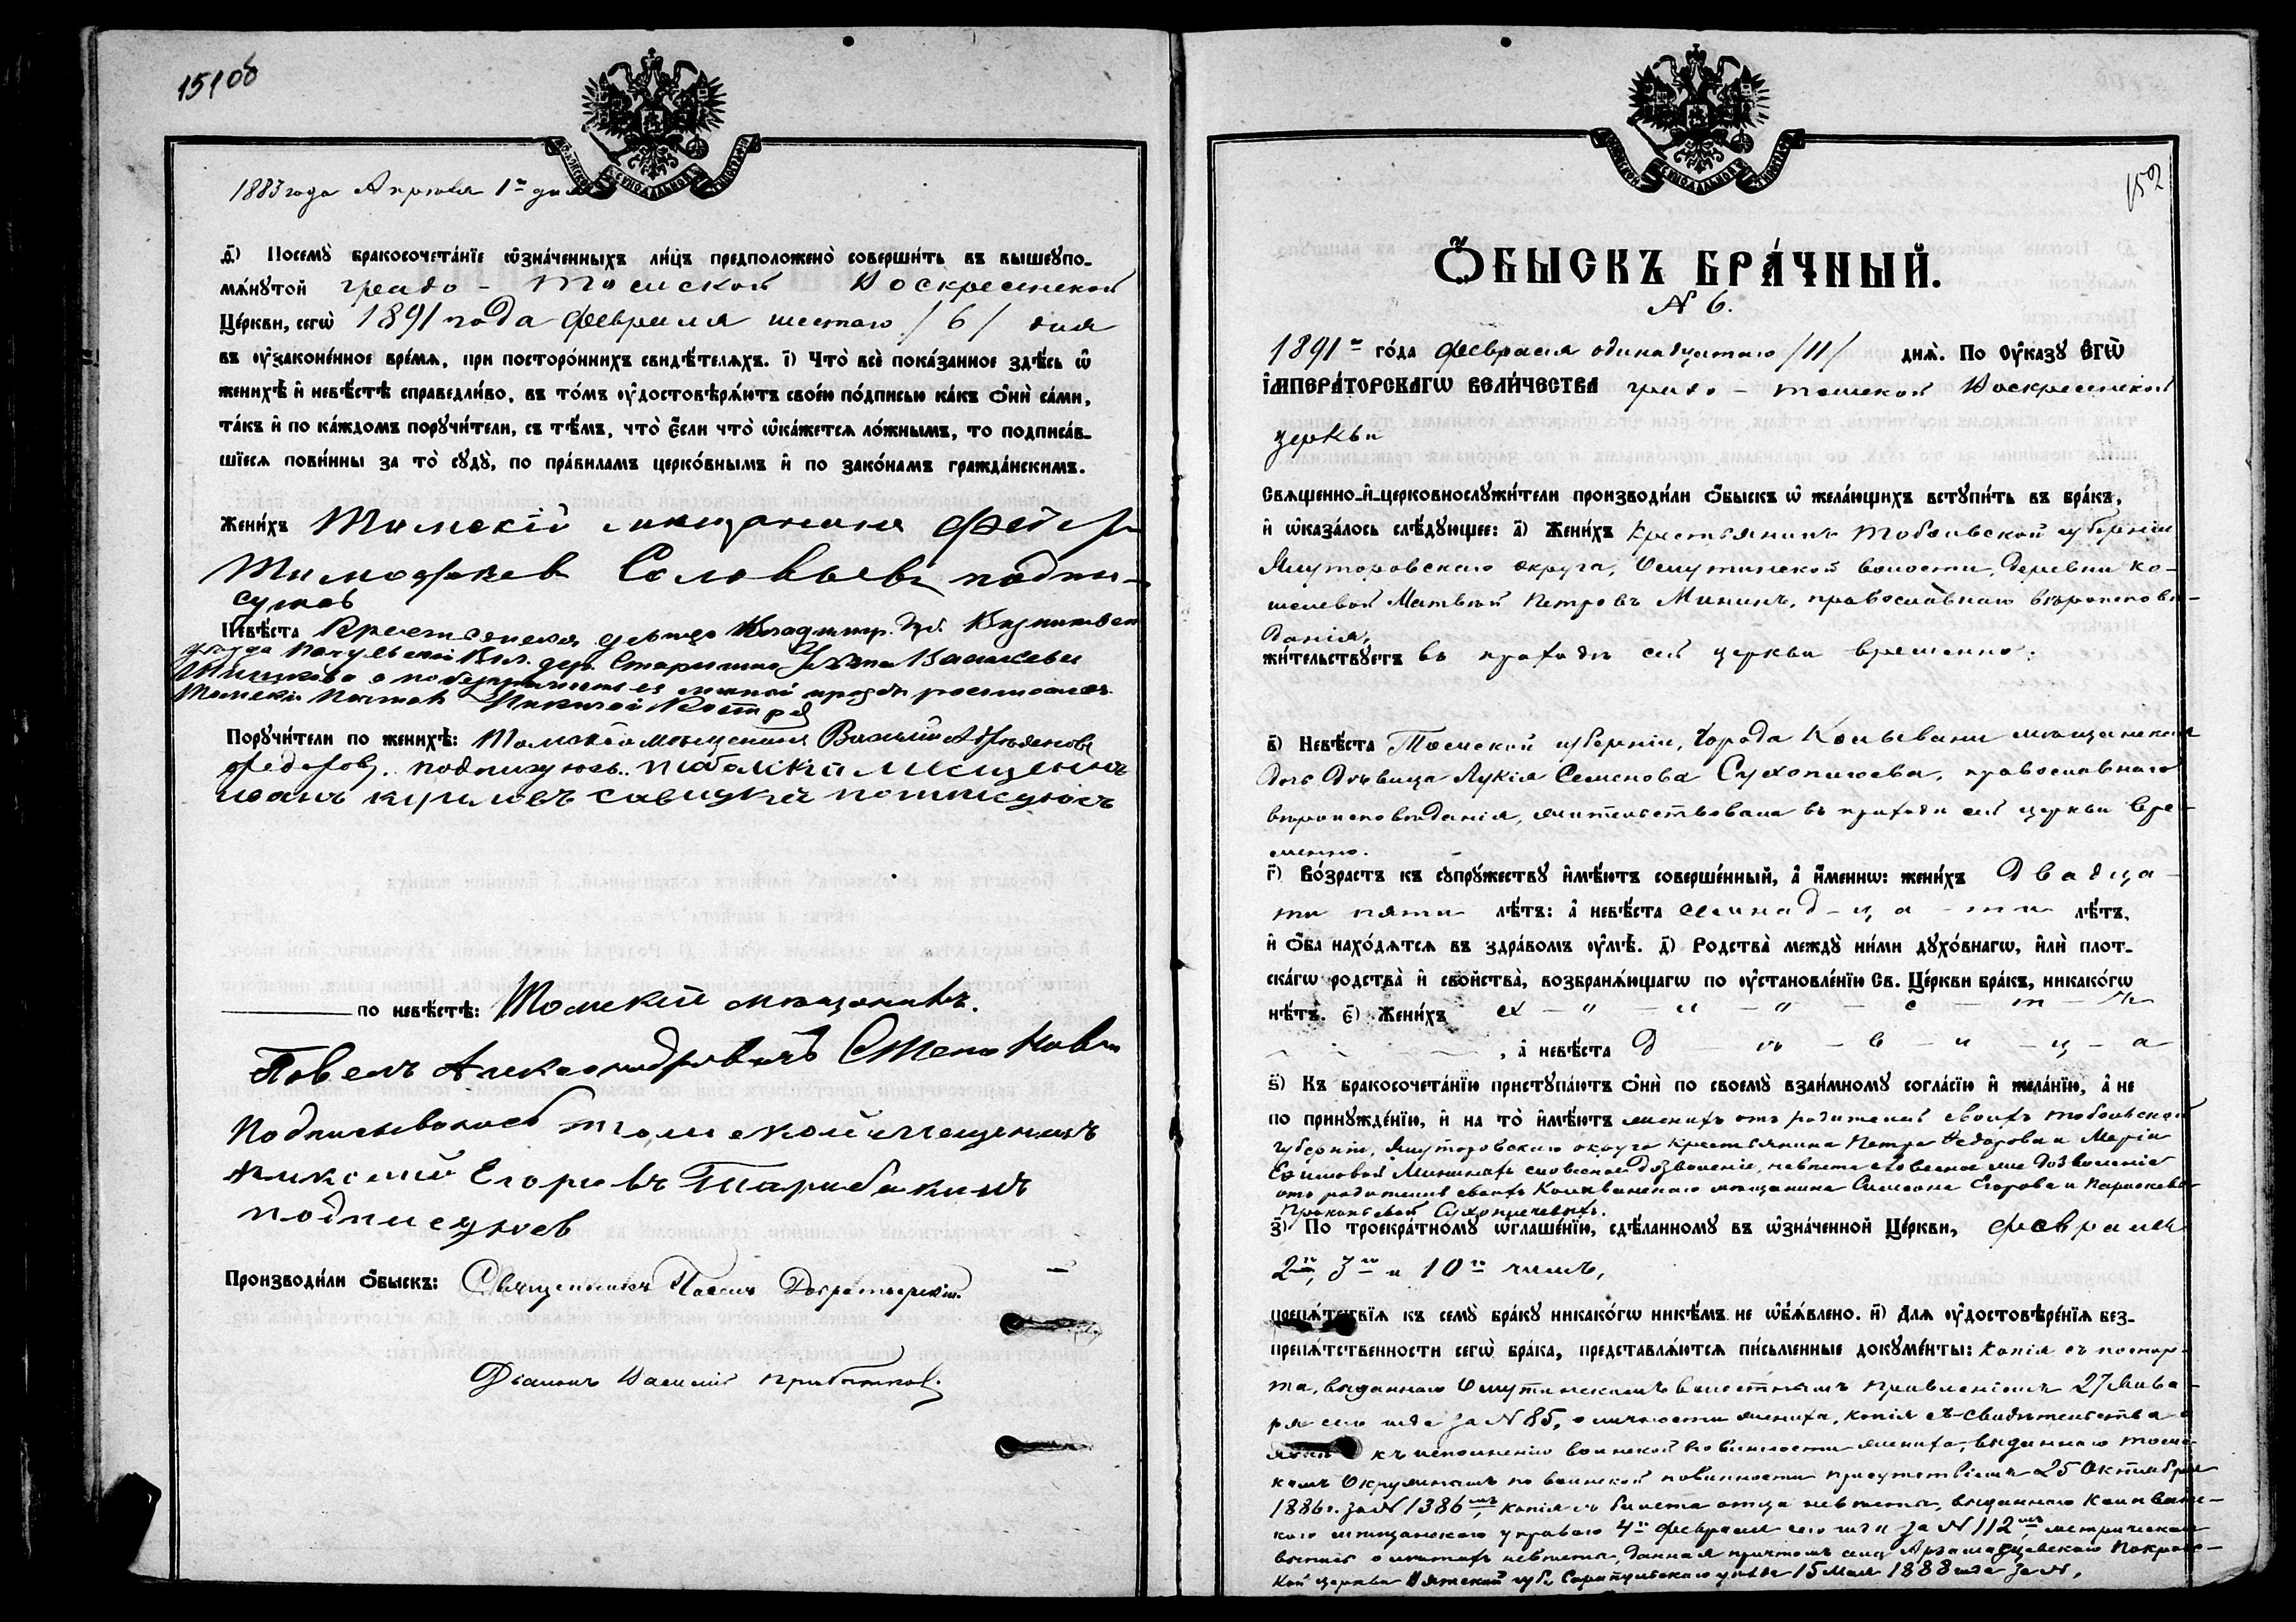 151об
1883 года Апреля 1го дня
МОСКОВСКОЙ СѴНОДАЛЬНОЙ ТИПОГРАФІИ
д҃і) Посемꙋ̀ бракосочета́нїе ѡ҆зна́ченныхъ ли́цъ предположено̀ соверши́ть въ вышеꙋпо-
мѧ́нꙋтой градо - Томской Воскресенской
Це́ркви, сегѡ̀ 1891 года февраля шестаго /6/ дня
въ ᲂу҆законе́нное вре́мѧ, при посторо́ннихъ свидѣ́телѧхъ. і҃) Что̀ всѐ пока́занное здѣ́сь ѡ҆
женихѣ̀ и҆ невѣ́стѣ справедли́во, въ то́мъ ᲂу҆достовѣрѧ́ютъ свое́ю по́дписью ка́къ ѻ҆нѝ са́ми,
та́къ и҆ по ка́ждомъ порꙋчи́тели, съ тѣ́мъ, что̀ є҆́сли что̀ ѡ҆ка́жется ло́жнымъ, то подписа́в-
шїеся пови́нны за то̀ сꙋдꙋ̀, по пра́виламъ церко́внымъ и҆ по зако́намъ гражда́нскимъ.
Жени́хъ Томскій мещанинъ Федер
Тимофеев Соловьевъ подпи-
суюсь
Невѣ́ста Крестьянская девица Владимир. Губ.
уезда Вол. дер. Старыгино Васильева
а по безграмотству ея личной просьбе росписался
Томскій Николай
Порꙋчи́тели по женихѣ̀: Томскій мещанинъ Василий
Федоровъ. подпизуюсь. тобольскiй мещенинъ
иванъ кириловъ савицкей потписуюсь
по невѣ́стѣ: Томский мещанинъ.
Павелъ Александровичъ Степановъ
Подписываюсь томской мещенинъ
Алексей Егоровъ Тарабакинъ
подписуюсь
Производи́ли ѻ҆́быскъ: Священникъ Павелъ Добротворскій.
Діаконъ Василий Прибытковъ
152
МОСКОВСКОЙ СѴНОДАЛЬНОЙ ТИПОГРАФІИ
Ѻ҆́БЫСКЪ БРА́ЧНЫЙ.
N 6.
1891го го́да февраля одинадцатаго /11/ днѧ̀. По ᲂу҆казꙋ Є҆гѡ̀
І҆мпера́торскагѡ вели́чества градо - томской Воскресенской
церкви
Свѧщенно-и҆-церковнослꙋжи́тели производи́ли ѻ҆́быскъ ѡ҆ жела́ющихъ встꙋпи́ть въ бра́къ,
и҆ ѡ҆каза́лось слѣ́дꙋющее: а҃) Жени́хъ крестьянинъ Тобольской губерніи
Ялуторовскаго округа, Омутинской волости, деревни Ко-
шелевой Матвѣй Петровъ Мининъ, православнаго вѣроисповѣ-
данія,
жи́тельствꙋетъ въ приходѣ сей церкви временно.
в҃) Невѣ́ста Томской губерніи, города Колывани мѣщанская
дочь дѣвица Лукія Семенова православнаго
вѣроисповѣданія, жительствовала въ приходѣ сей церкви вре-
менно.
г҃) Во́зрастъ къ сꙋпрꙋ́жествꙋ и҆мѣ́ютъ соверше́нный, а҆ и҆́меннѡ: жени́хъ двадца-
ти пяти лѣ́тъ: а҆ невѣ́ста семнад-ца-ти лѣ́тъ,
и҆ ѻ҆́ба нахо́дѧтсѧ въ здра́вомъ ᲂу҆мѣ̀. д҃) Родства̀ междꙋ̀ ни́ми дꙋхо́внагѡ, и҆лѝ плот-
ска́гѡ родства̀ и҆ сво́йства̀, возбранѧ́ющагѡ по ᲂу҆становле́нїю Св. Це́ркви бра́къ, никако́гѡ
нѣ́тъ. є҃) Жени́хъ х - о - л - о - с - т - ъ
, а҆ невѣ́ста д - ѣ - в - и - ц - а
ѕ҃) Къ бракосочета́нїю пристꙋпа́ютъ ѻ҆нѝ по своемꙋ̀ взаи́мномꙋ согла́сїю и҆ жела́нїю, а҆ не
по принꙋжде́нїю, и҆ на то̀ и҆мѣ́ютъ женихъ отъ родителей своихъ тобольской
губерніи, Ялуторовскаго округа крестьянина Петра Федорова и Маріи
Ефимовой Мининыхъ словесное дозволеніе, невѣста словесное же дозволеніе
отъ родителей своихъ Колыванскаго мѣщанина Симеона Егорова и Параскевы
Прокопьевой
з҃) По троекра́тномꙋ ѡ҆глаше́нїю, сдѣ́ланномꙋ въ ѡ҆зна́ченной Це́ркви, февраля
2го, 3го и 10го числъ,
препѧ́тствїѧ къ семꙋ̀ бра́кꙋ никако́гѡ никѣ́мъ не ѡ҆б̾ѧ́влено. и҃) Длѧ ᲂу҆достовѣре́нїѧ без-
препѧ́тственности сегѡ̀ бра́ка, представлѧ́ютсѧ пи́сьменные докꙋме́нты: копія съ паспор-
та, выданнаго Омутинскимъ волостнымъ правленіемъ 27 Янва-
ря сего года за N 85, о личности жениха, копія съ свидѣтельства о
явкѣ къ исполненію воинской повинности жениха, выданнаго томс-
кимъ Окружнымъ по воинской повинности присутствіемъ 25 Октября
1886 г. за N 1386мъ, копія съ билета отца невѣсты, выданнаго Колыванс-
кою мѣщанскою управою 4го февраля сего года за N 112мъ, метрическая
выпись о лѣтахъ невѣсты, данная причтомъ села Арзамасцевскаго Покровс-
кой церкви Вятской губ. Сарапульскаго уѣзда 15 Мая 1888 года за N,